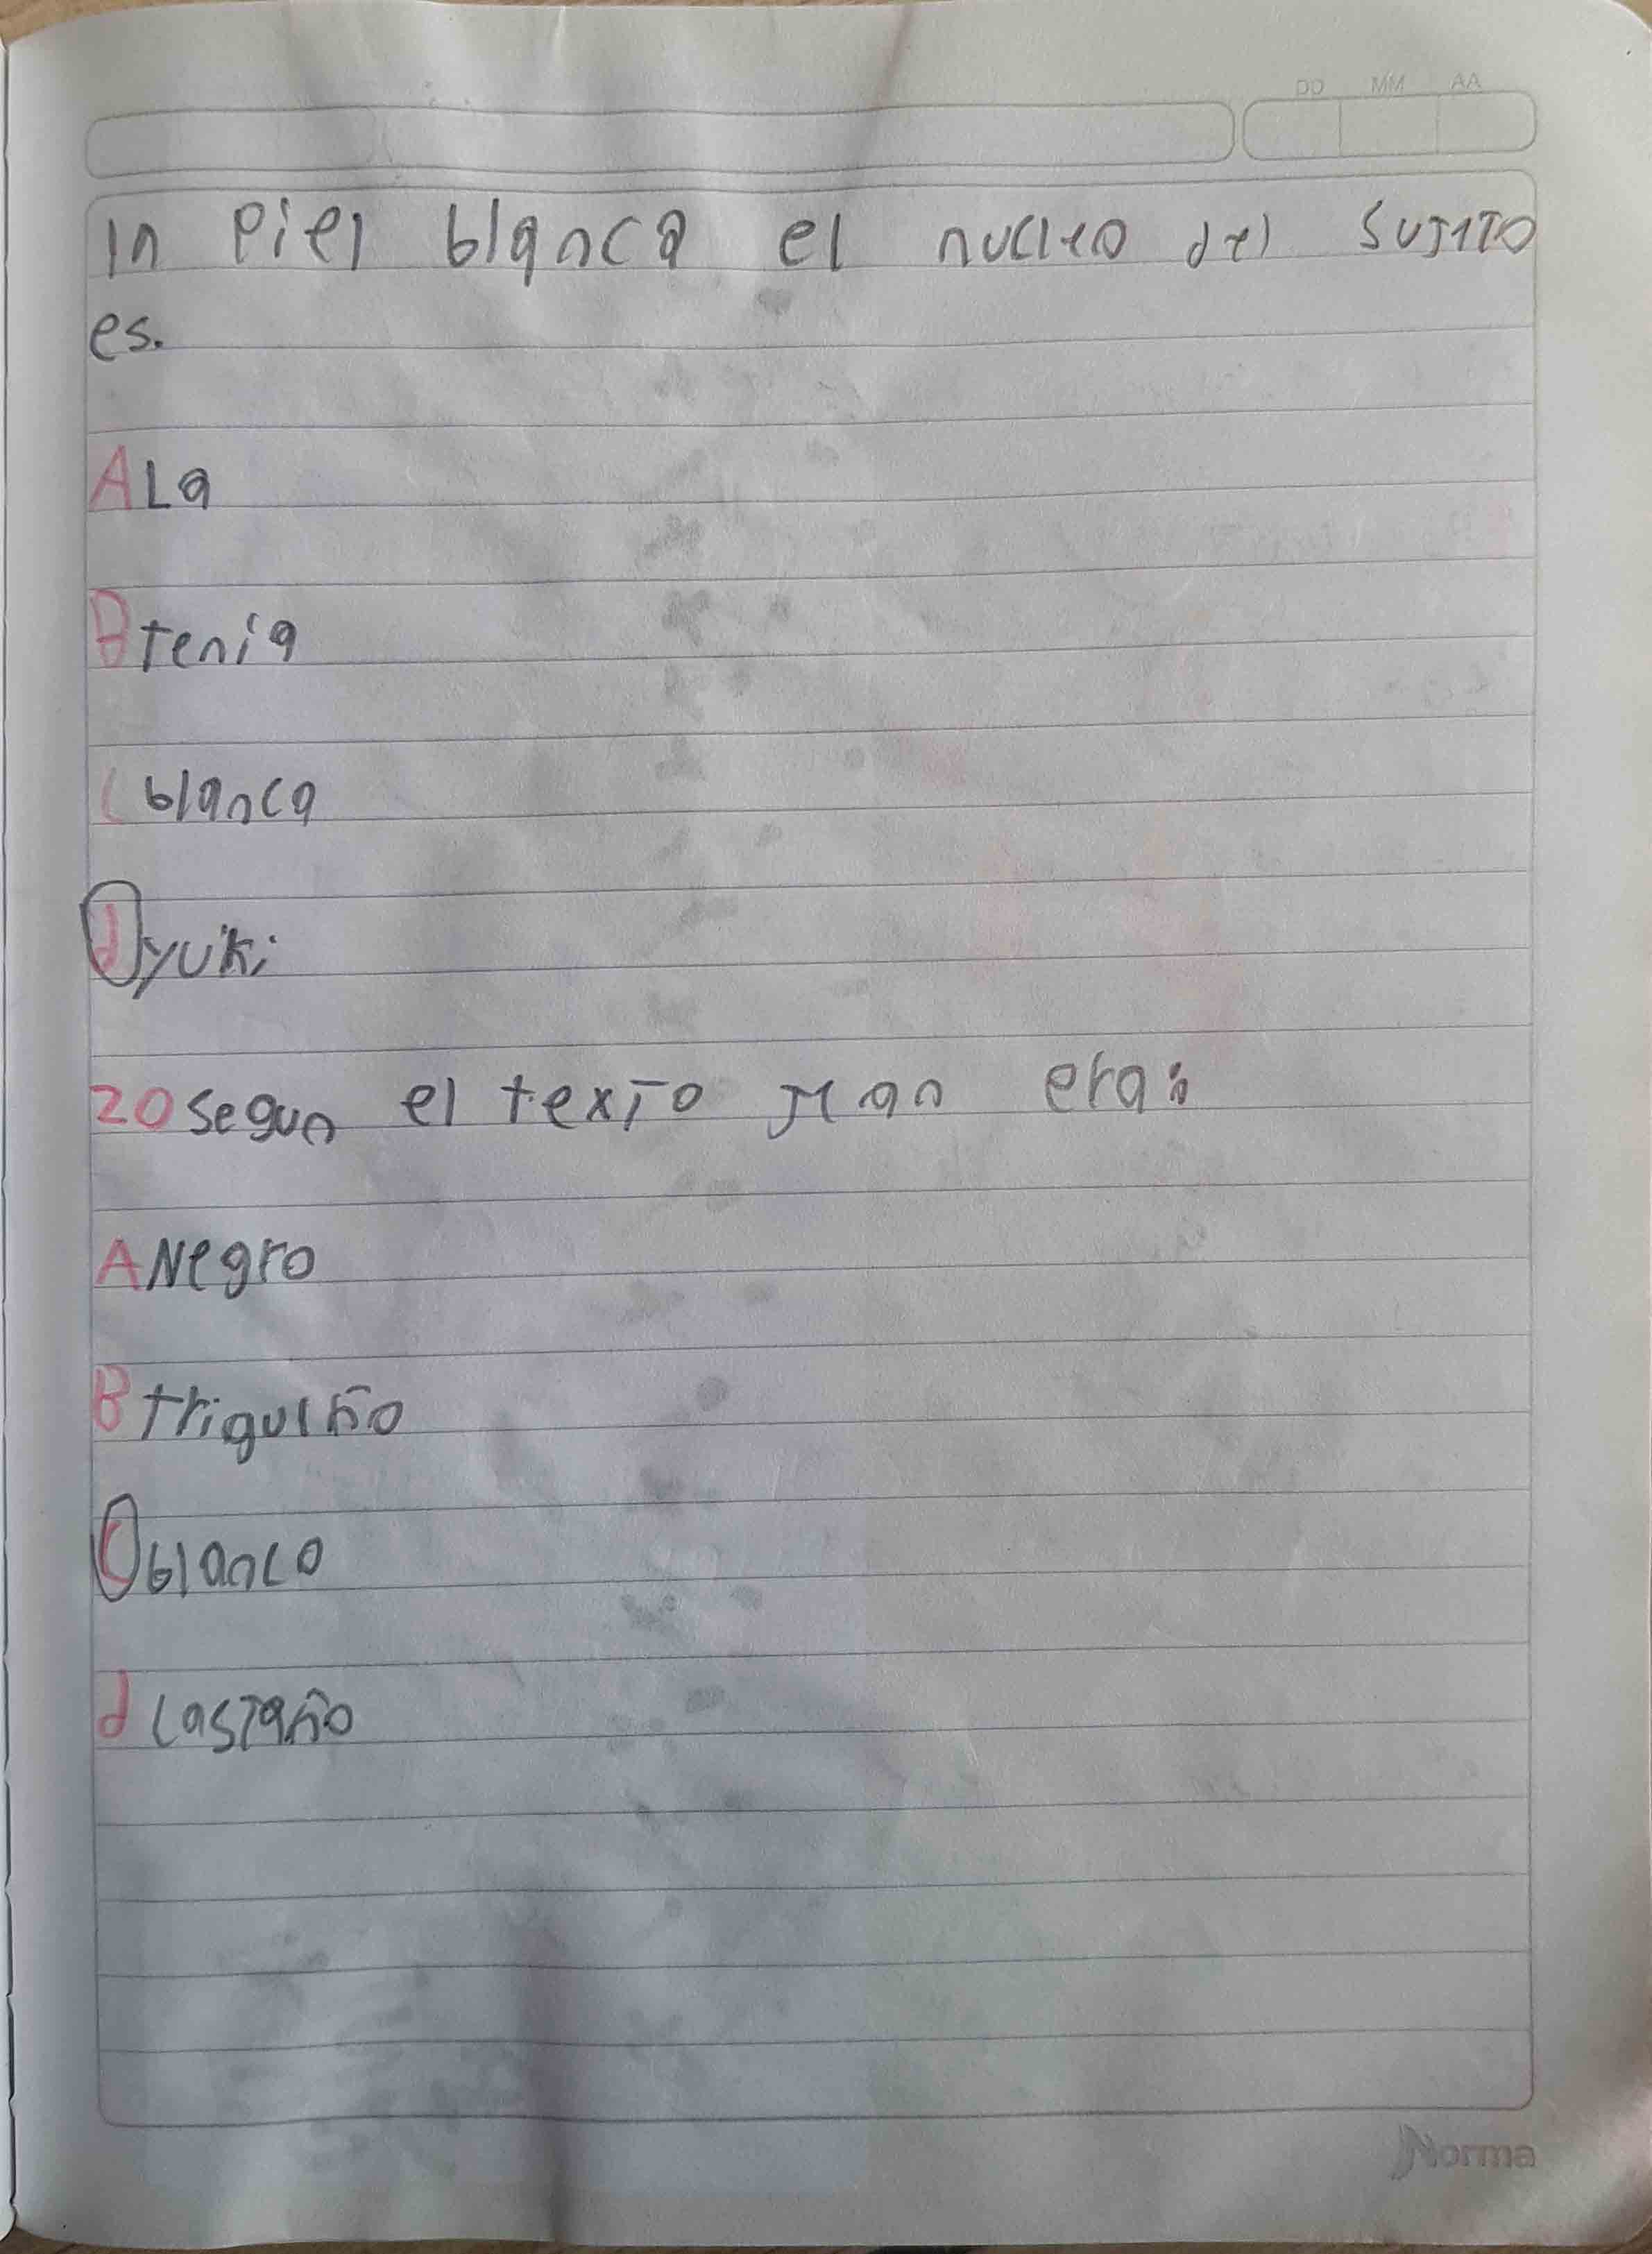 DD MM AA
In piel blanca el nucleo del sujeto
es.
A La
B tenia
C blanca
d yuki
20 segun el texto era:
A Negro
B trigueño
C blanco
d castaño
Norma